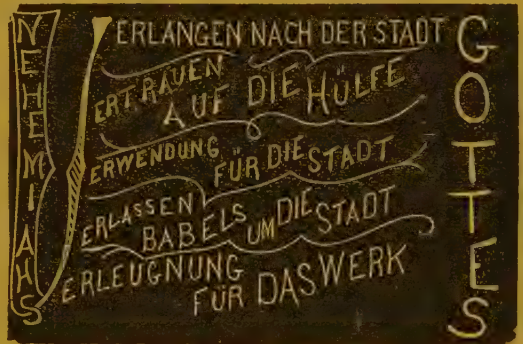 NEHEMIAHS
V
ERLANGEN NACH DER STADT
ERTRAUEN
AUF DIE HÜLFE
ERWENDUNG
FÜR DIE STADT
ERLASSEN
BABELS UM DIE STADT
ERLEUGNUNG
FÜR DAS WERK
GOTTES